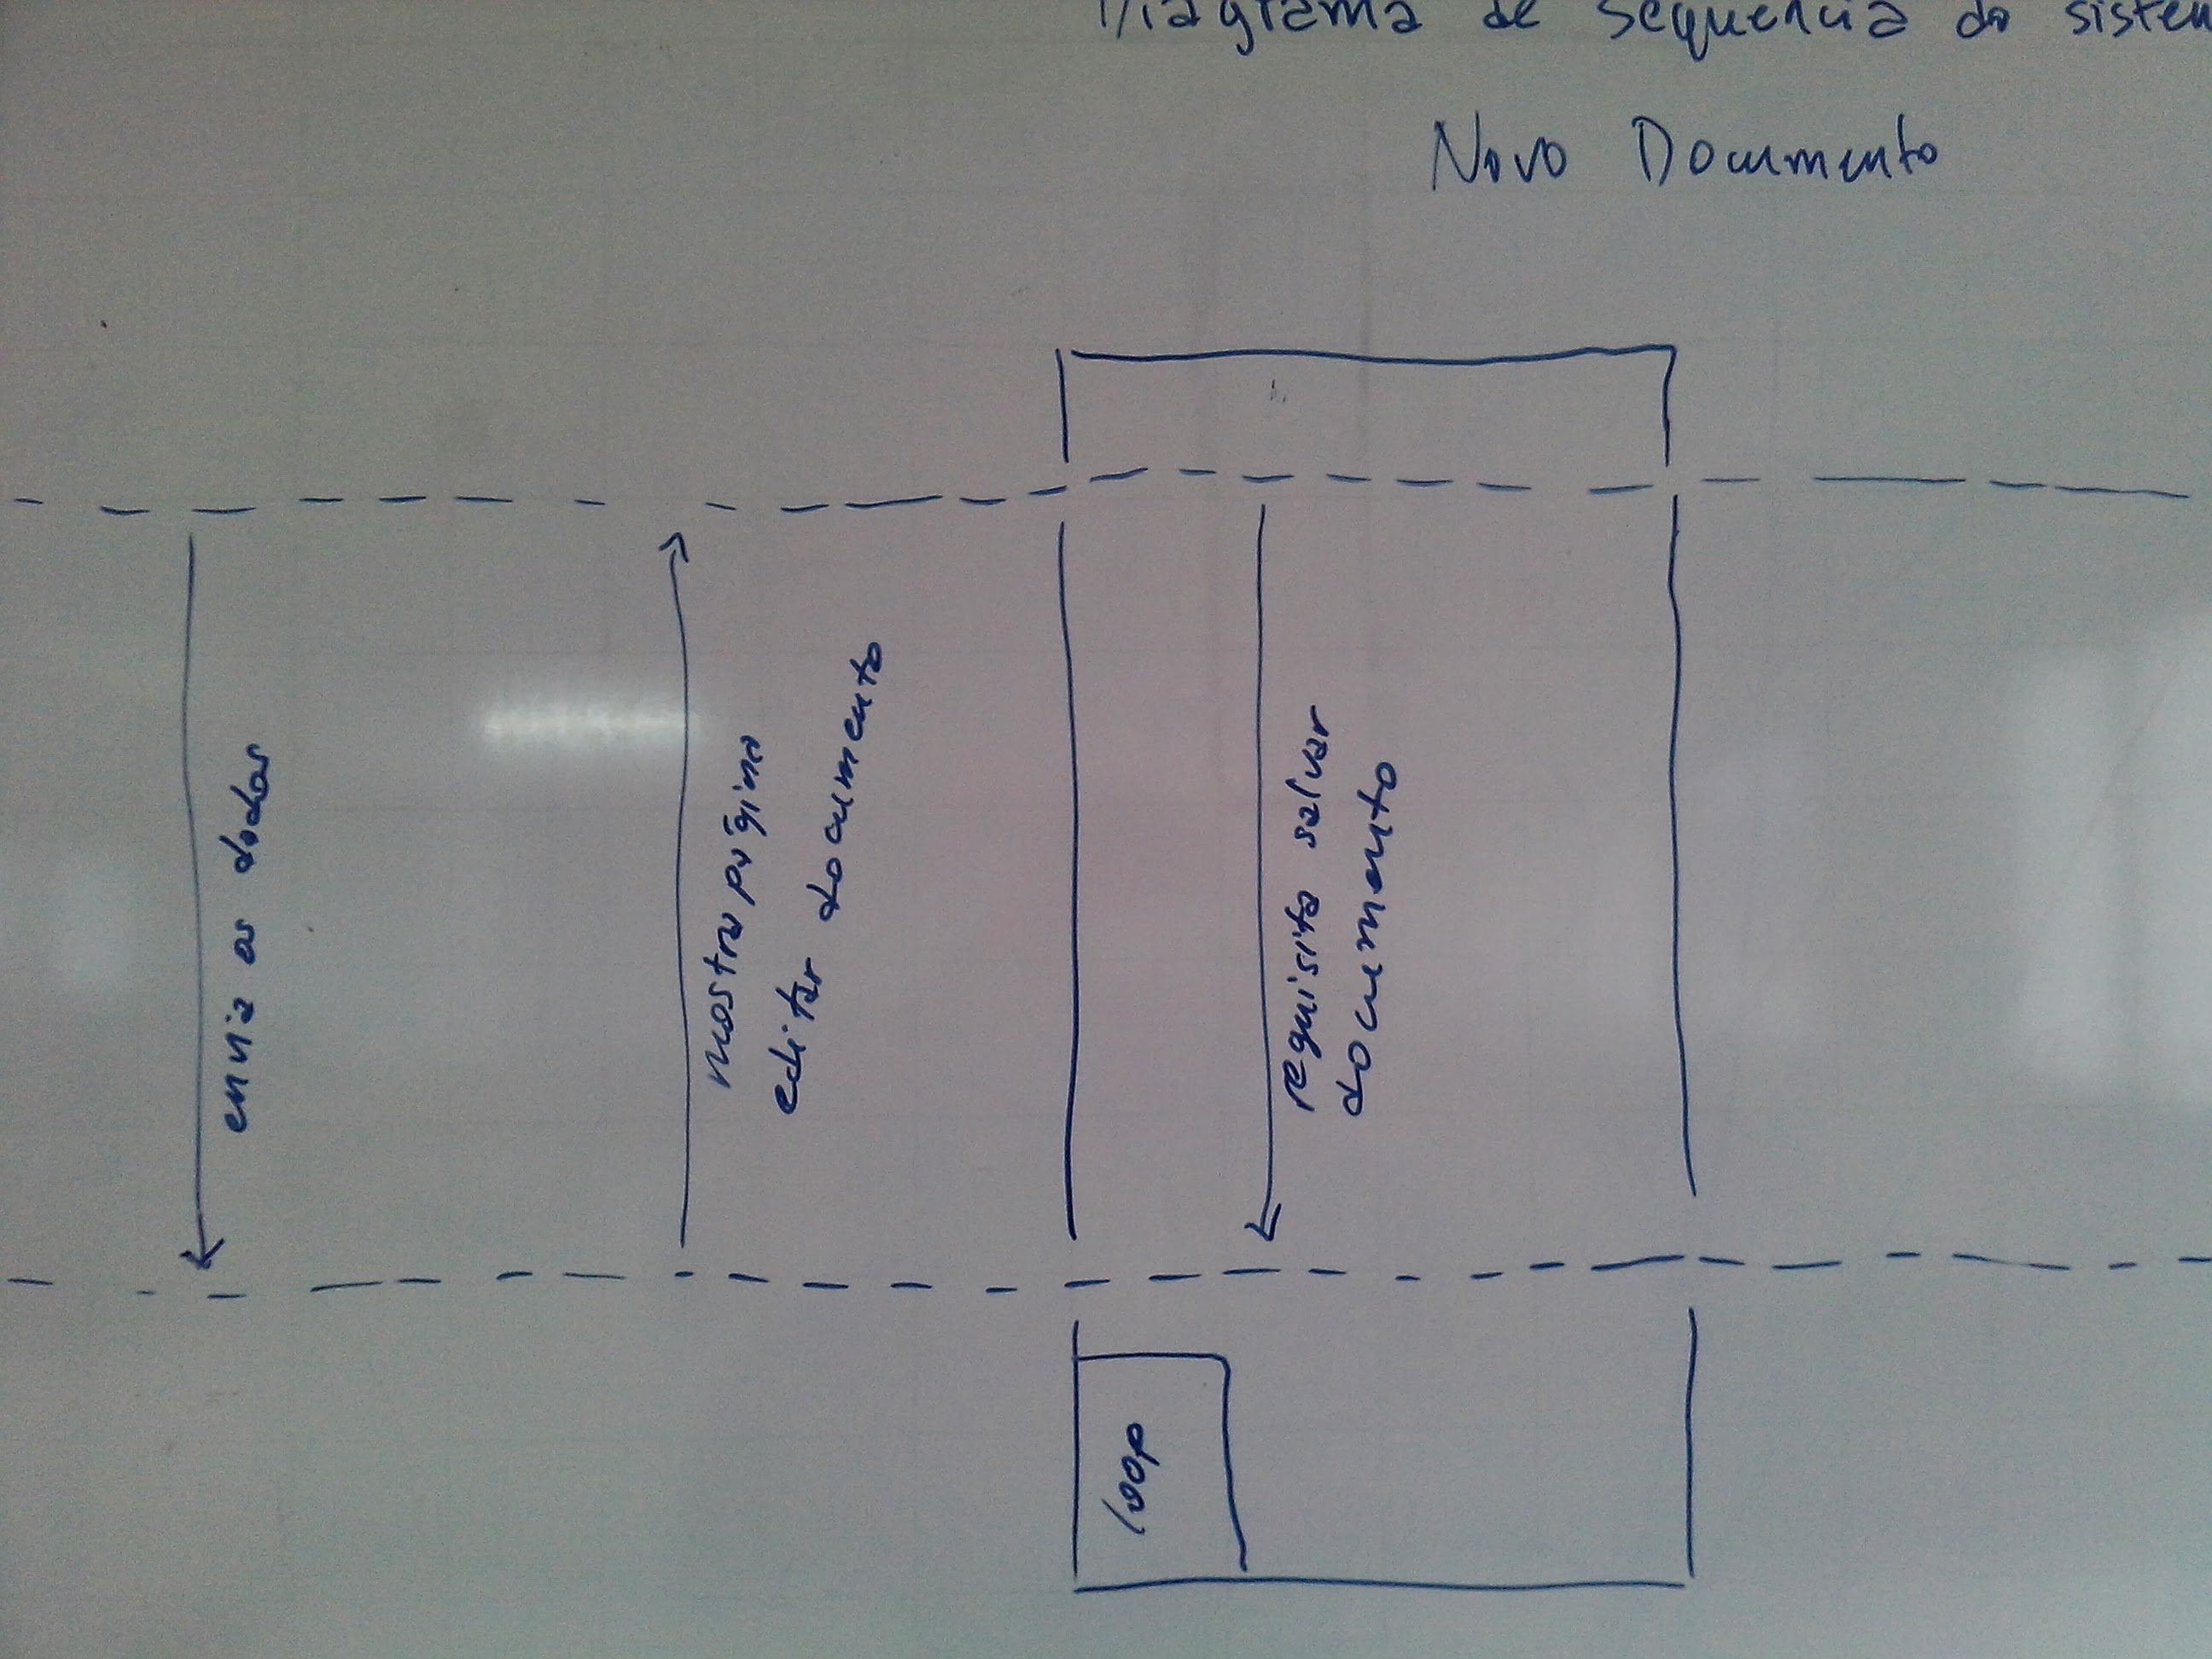 Diagrama de sequência do sistem
Novo Documento
envia os dados
mostra página
editar documento
requisita salvar
documento
loop